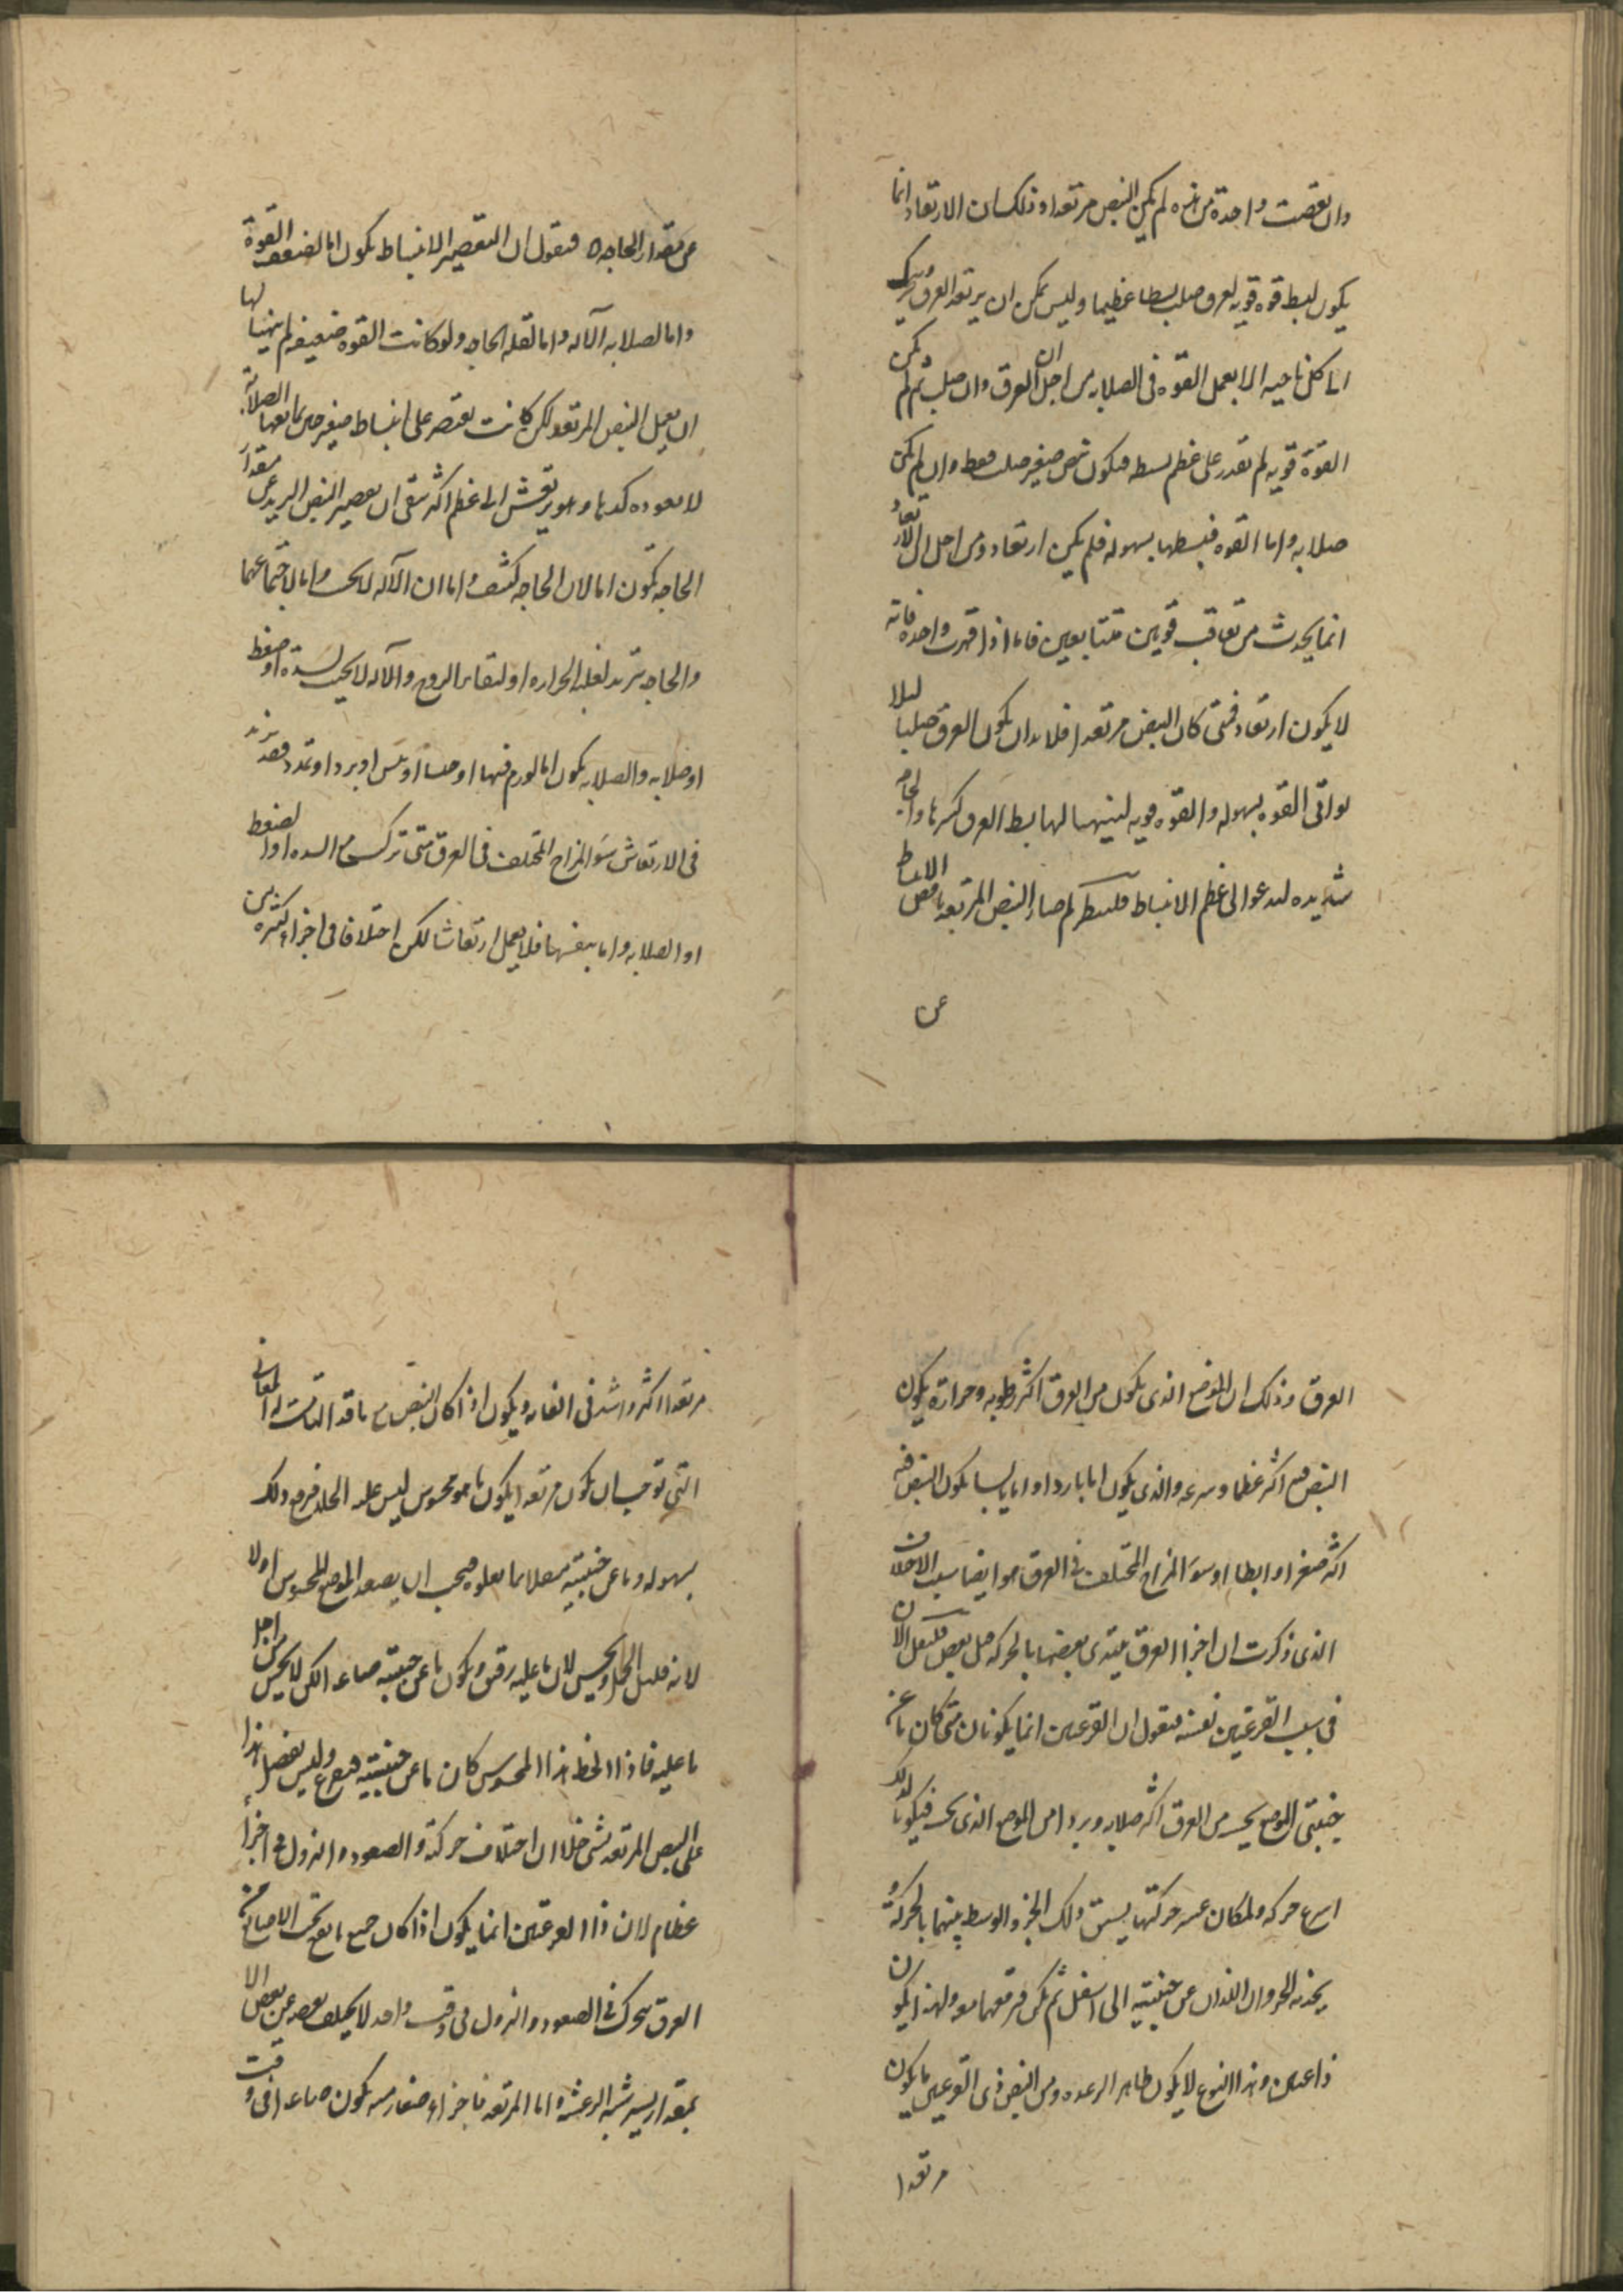 وان نقصت واحدة من هذه لم يكن النبض مرتعدا وذلك ان الارتعاد انما
يكون لبسط قوه قويه لعرق صلب بسطا عظيما وليس يمكن ان يرتعد العرق ويتحرك
الى كل ناحيه الا بعمل القوه فى الصلابه من اجل ان العرق وان صلب ثم لم يكن
القوة قويه لم تقدر على عظم بسطه فيكون نبض صغير صلب فقط وان لم يكن
صلابه واما القوه فبسطها بسهوله فلم يكن ارتعاد ومن اجل ان الارتعاد
انما يحدث من تعاقب قوتين متتابعين فاما اذا قهرت واحده فانه
لا يكون ارتعاد فمتى كان النبض مرتعدا فلا بد ان يكون العرق صلبا ليلا
يواتى القوه بسهوله والقوه قويه ليتهيا لها بسط العرق كرها والحاجه
شديده لتدعوا الى عظم الانبساط فلننظر لم صار النبض المرتعد ناقص الانبساط
عن
عن مقدار الحاجه فنقول ان التقصير الانبساط يكون اما لضعف القوة
واما لصلابه الآله واما لقله الحاجه ولو كانت القوه ضعيفه لم يتهيا لها
ان يعمل النبض المرتعد لكن كانت تقتصر على انبساط صغير حين تمانعها الصلابة
الحاجه تكون اما لان الحاجه كثيره واما ان الآله لا تحب واما لاجتماعهما
والحاجه تزيد لغلبه الحراره او لتغاير الروح والآله لا تحب لسدة او ضغط
او صلابه والصلابه يكون اما لورم فيها او جسا او يبس او برد او تمدد فقد تزيد
فى الارتعاش سوء المزاج المختلف فى العرق متى تركب مع السده او الضغط
او الصلابه واما بنفسها فلا يعمل ارتعاشا لكن اختلافا فى اجزاء كثيره من
العرق وذلك ان الموضع الذى يكون من العرق اكثر رطوبه وحرارة يكون
النبض فيه اكثر عظما وسرعه والذى يكون اما باردا او يابسا يكون النبض فيه
اكثر صغرا وابطا وسوء المزاج المختلف فى العرق هو ايضا سبب الاختلاف
الذى ذكرت ان اجزا العرق يبتدى بعضها بالحركه قبل بعض فلنقل الان
فى سبب القرعتين نفسه فنقول ان القرعتين انما يكونان متى كان ما عن
جنبتى الموضع يحس من العرق اكثر صلابه وبردا من الموضع الذى يحس فيكون لذلك
اسرع حركه ولمكان عسر حركتها يسبق ذلك الجزو الوسط بينهما بالحركة و
يجذبه الجزوان اللذان عن جنبتيه الى اسفل ثم يكن قرقعهما معه ولهذا يكون
ذا قرعتين وهذا النوع لا يكون ظاهر الرعده ومن النبض ذى القرعتين ما يكون
مرتعدا
مرتعدا اكثر واشد فى الغايه ويكون اذا كان النبض مع ما قد التامت له المعانى
التى توجب ان يكون مرتعدا يكون ما هو محسوس ليس عليه الجلد فرفع ذلك
بسهوله وما عن جنبتيه مثقلا بما يعلوه فيجب ان يصعد الموضع المحسوس اولا
لانه قليل الجلد ويحس لان ما عليه رقيق ويكون ما عن جنبتيه صاعدا لكن لا يحس من اجل
ما عليه فاذا انحط هذا المحسوس كان ما عن جنبتيه فيقرع وليس يفضل هذا
على النبض المرتعد بشى خلا ان اختلاف حركة والصعود والنزول فى اجزأ
عظام لان ذا القرعتين انما يكون اذا كان جميع ما يقع تحت الاصابع من
العرق يتحرك فى الصعود والنزول فى وقت واحد لا يختلف بعضه عن بعض الا
بمقدار يسير شبه الرعشه واما المرتعد فاجزاء صغار منه يكون صاعدا فى وقت